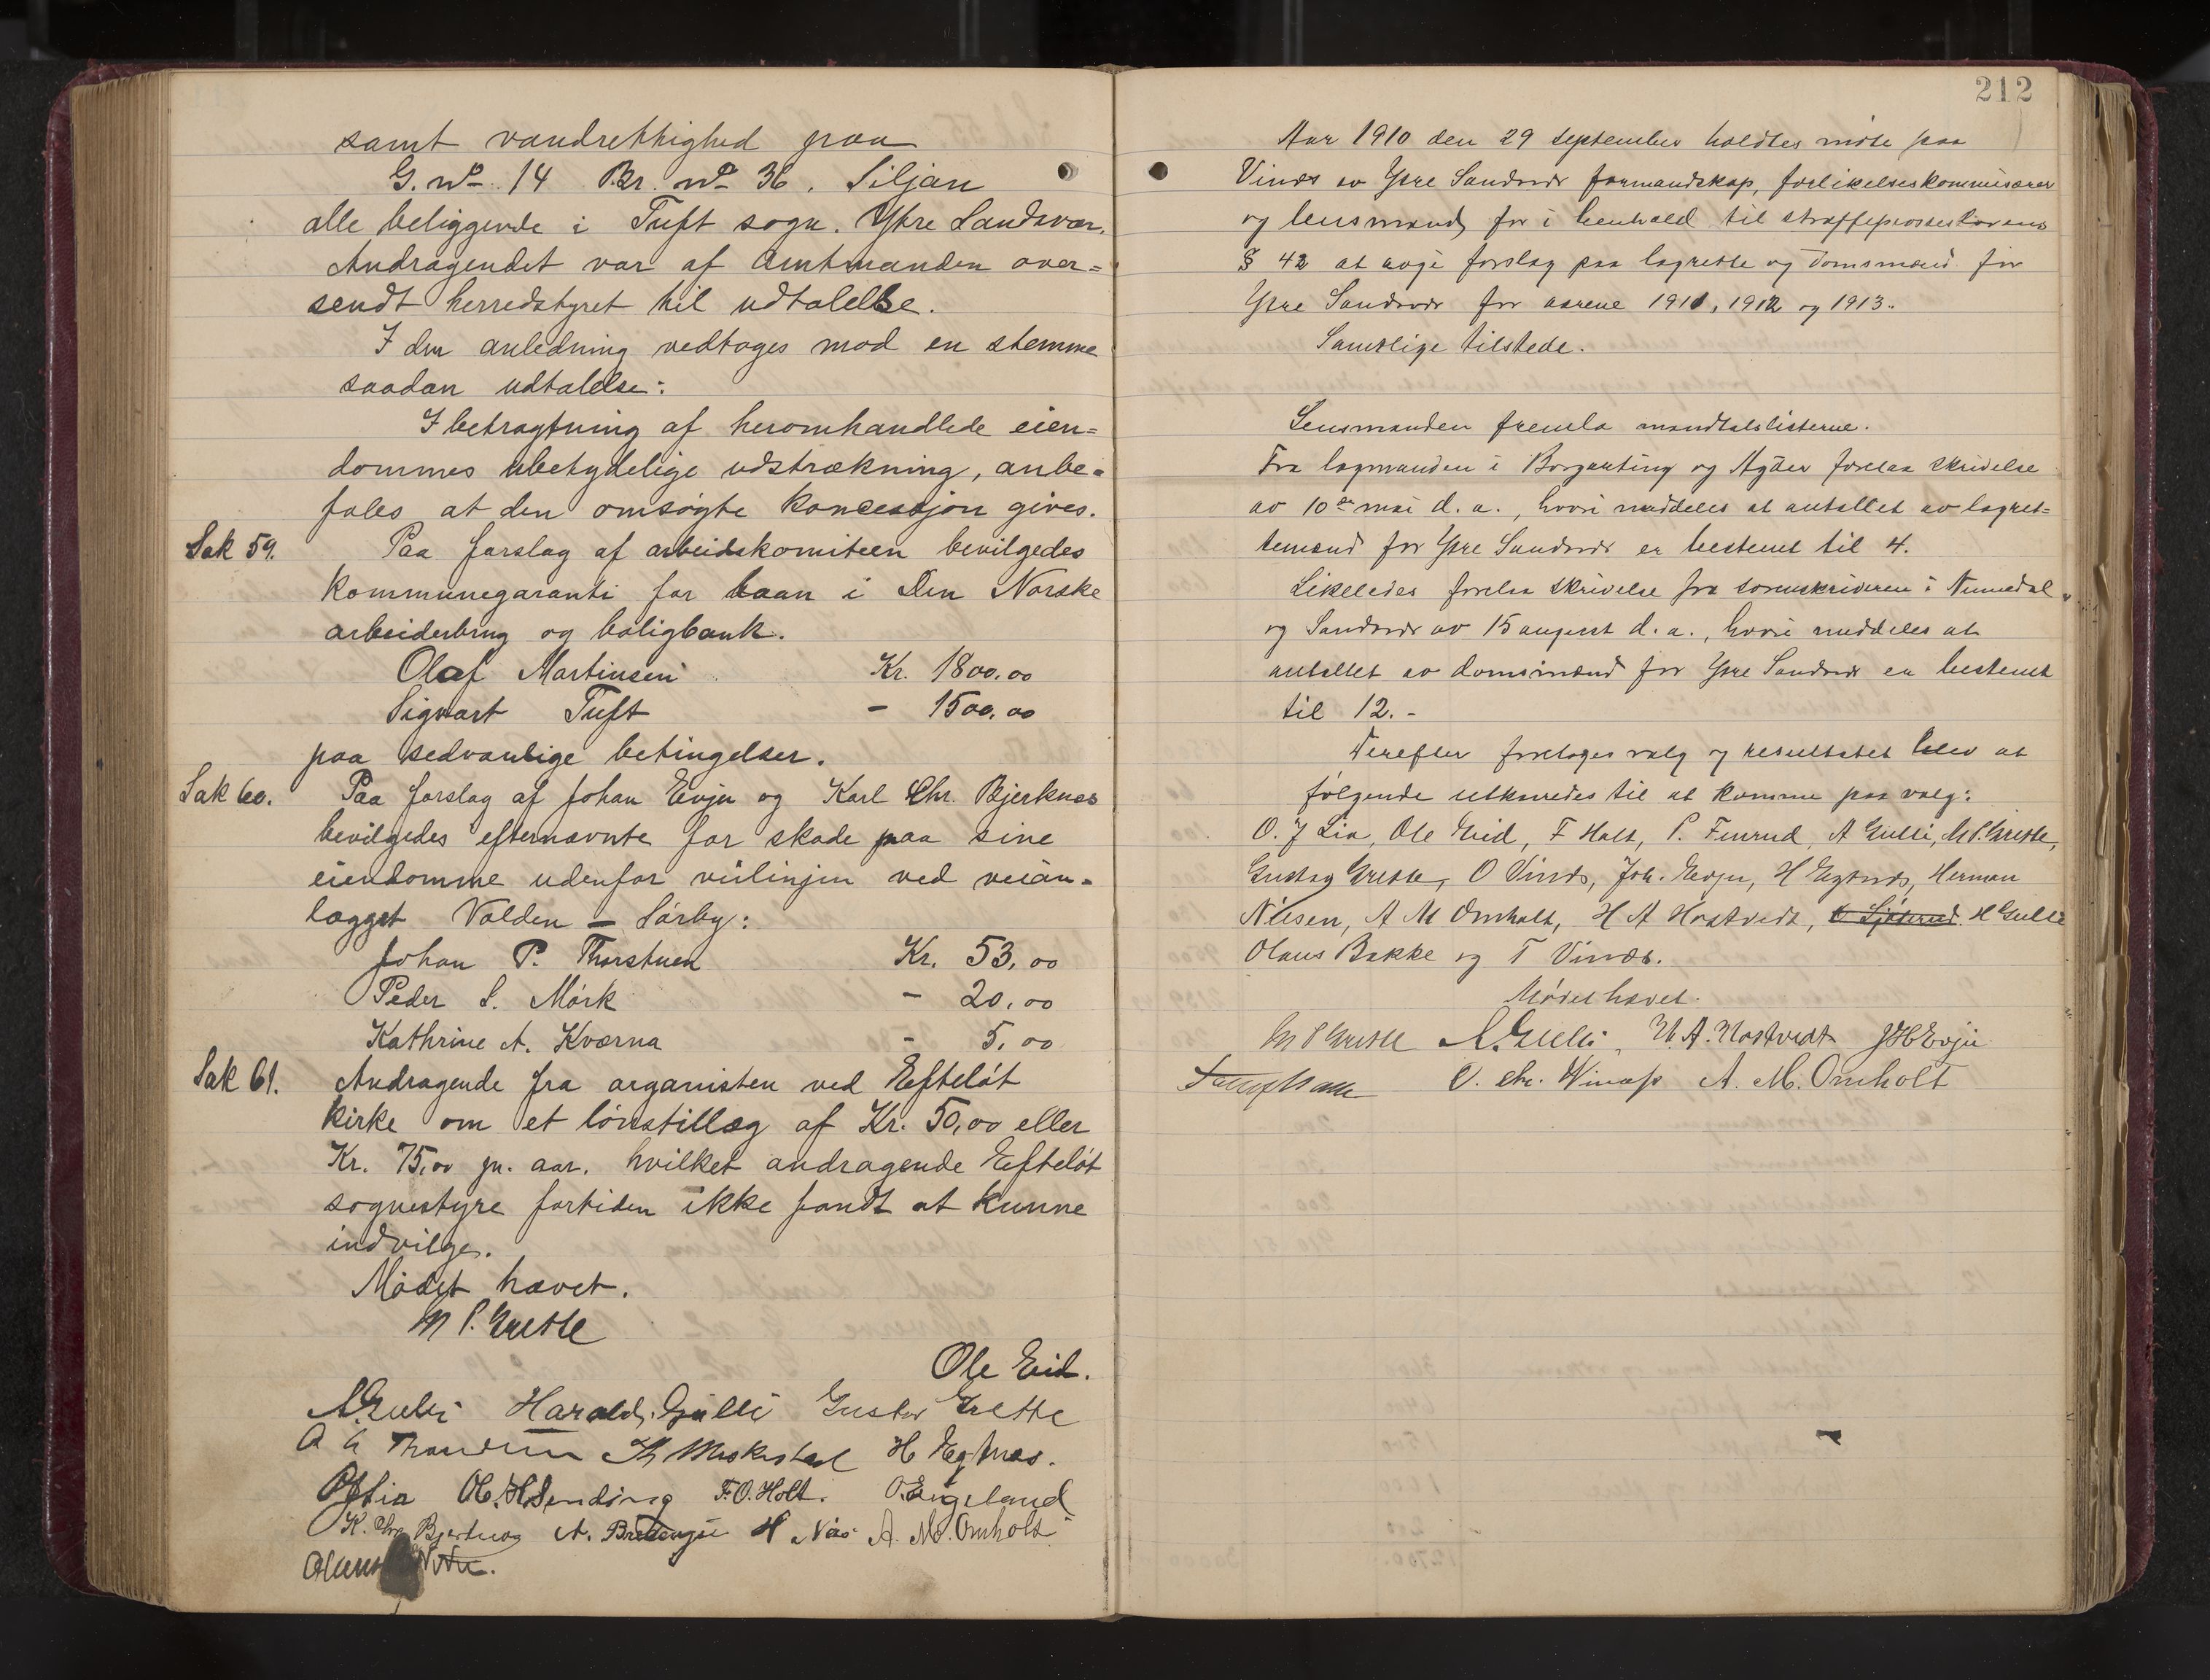 samt vandrettighed paa
G. no 14 Br. no 36. Siljan
alle beliggende i Tuft sogn. Ytre Sandsvær.
Andragendet var af Amtmanden over=
sendt herredstyret til udtalelse.
I den anledning vedtoges mod en stemme
saadan udtalelse:
I betragtning af heromhandlede eien=
dommes ubetydelige udstrækning, anbe=
fales at den omsøgte koncessjon gives.
Sak 59. Paa forslag af arbeidskomiteen bevilgedes
kommunegaranti for laan i Den Norske
arbeiderbrug og boligbank.
Olaf Martinsen Kr. 1800,00
Sigvart Tuft - 1500,00
paa sedvanlige betingelser.
Sak 60. Paa forslag af Johan Evju og Karl Chr. Bjerknes
bevilgedes efternævnte for skade paa sine
eiendomme udenfor veilinjen ved veian-
lægget Volden - Sørby:
Johan P. Thorstuen Kr. 53,00
Peder S. Mørk - 20,00
Kathrine A. Kværna - 5,00
Sak 61. Andragende fra organisten ved Efteløt
kirke om et lønstillæg af Kr. 50,00 eller
Kr. 75,00 pr. aar. hvilket andragende Efteløt
sognestyre fortiden ikke fandt at kunne
indvilge.
Mødet hævet.
M P. Grette
Ole Eid.
A. Gulli Harald Gulli Gustav Grette
H Egtnæs.
O J Lia F. O. Holt. O. Engeland
K. Chr Bjerknes A. H Næs A. M. Omholt
212
Aar 1910 den 29 september holdtes møte paa
Vinæs av Ytre Sandsvær formandskap, forlikelseskommisærer
og lensmand, for i henhold til straffeprosesslovens
§ 42 at avgi forslag paa lagrette og domsmænd for
Ytre Sandsvær for aarene 1911, 1912 og 1913.
Samtlige tilstede.
Lensmanden fremla mandtalslisterne.
Fra lagmanden i Borgarting og Agder forelaa skrivelse
av 10de mai d. a., hvori meddeles at antallet av lagret=
temænd for Ytre Sandsvær er bestemt til 4.
Likeledes forelaa skrivelse fra sorenskriveren i Numedal
og Sandsvær av 15 august d. a., hvori meddeles at
antallet av domsmænd for Ytre Sandsvær er bestemt
til 12. -
Derefter foretoges valg og resultatet blev at
følgende utkaaredes til at komme paa valg:
O. J Lia, Ole Eid, F Holt, P. Furrud, A Gulli, M P. Grette,
Gustav Grette, O Vinæs, Joh. Evju, H Egtnæs, Herman
Nilsen, A M Omholt, H A Hostvedt, H Gulli
Olaus Bakke og T Vinæs.
Mødet hævet.
M P Grette A. Gulli H. A. Hostvedt J H Evju
O. Chr. Winæss A. M. Omholt